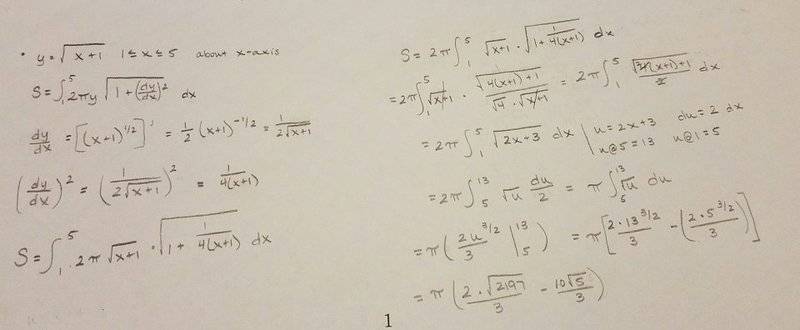 • y = √(x+1)  1 ≤ x ≤ 5  about x-axis
S = ∫₁⁵ 2πy √(1 + (dy/dx)²) dx
dy/dx = [(x+1)^(1/2)]' = 1/2 (x+1)^(-1/2) = 1/(2√(x+1))
(dy/dx)² = (1/(2√(x+1)))² = 1/(4(x+1))
S = ∫₁⁵ 2π √(x+1) · √(1 + 1/(4(x+1))) dx
S = 2π ∫₁⁵ √(x+1) · √(1 + 1/(4(x+1))) dx
= 2π ∫₁⁵ √(x+1) · √(4(x+1)+1)/(√4 · √(x+1)) = 2π ∫₁⁵ √(4(x+1)+1)/2 dx
= 2π ∫₁⁵ √(2x+3) dx | u = 2x+3  du = 2 dx
u@5 = 13  u@1 = 5
= 2π ∫₅¹³ √u du/2 = π ∫₅¹³ √u du
= π (2u^(3/2)/3 |₅¹³) = π [2·13^(3/2)/3 - (2·5^(3/2)/3)]
= π (2·√2197/3 - 10√5/3)
1